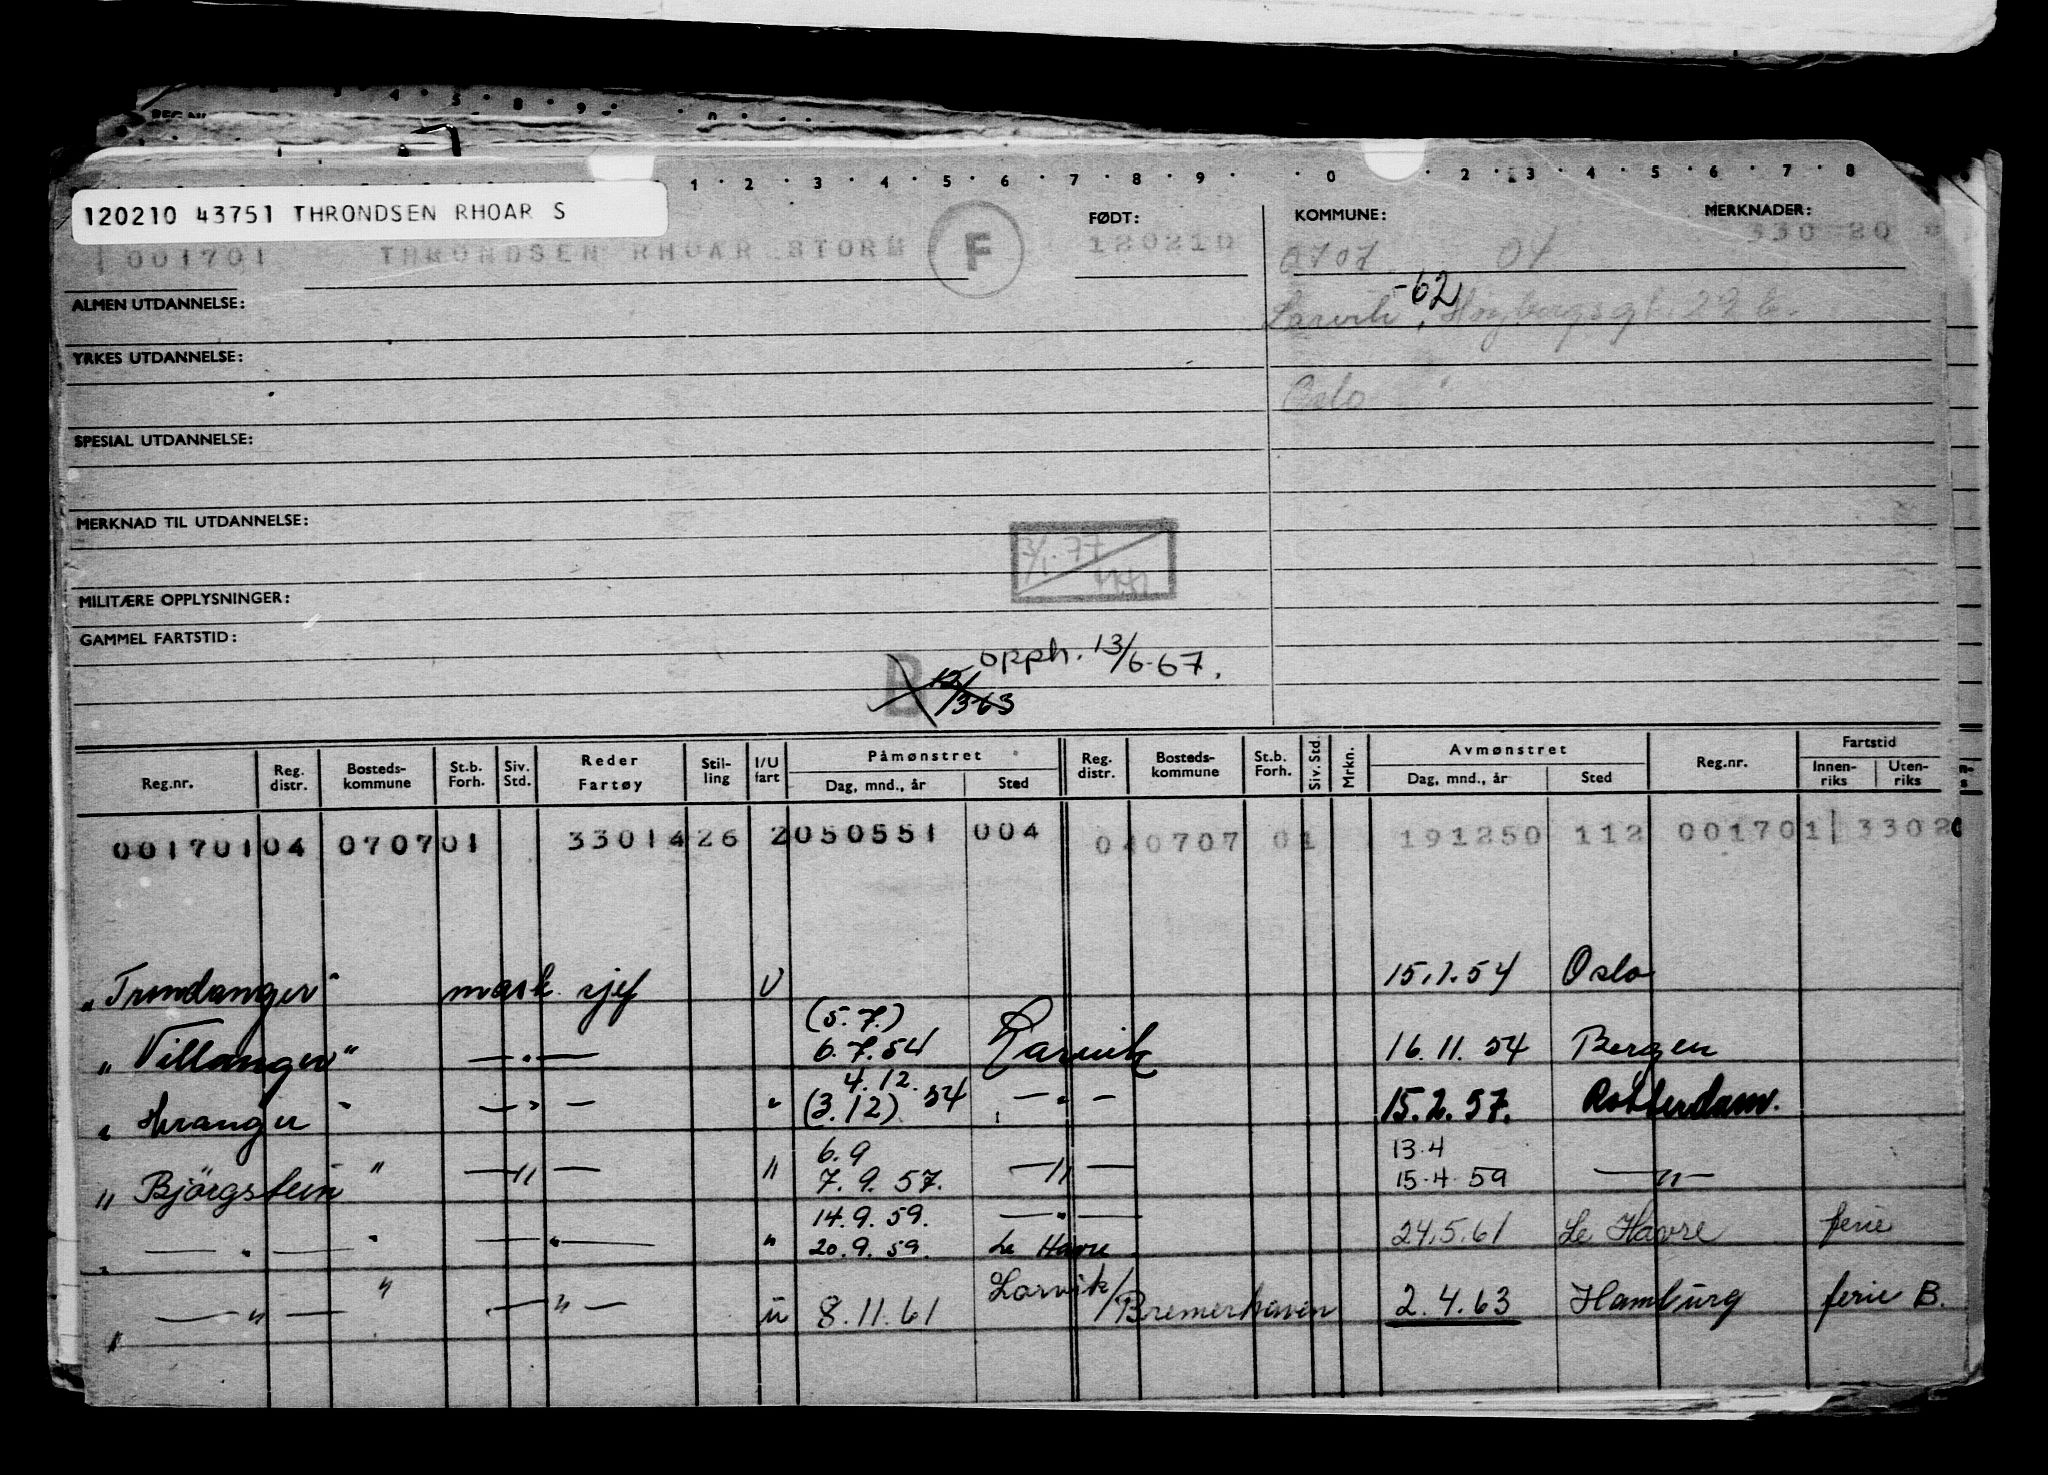 120210 43751 THRONDSEN RHOAR S
FØDT: KOMMUNE: MERKNADER:
001701 THRONDSEN RHOAR STORM F 120210 0707 04 330 20
-62
ALMEN UTDANNELSE: Larvik, 29 b.
YRKES UTDANNELSE:
Oslo
SPESIAL UTDANNELSE:
MERKNAD TIL UTDANNELSE:
3/1.77
MILITÆRE OPPLYSNINGER:
GAMMEL FARTSTID:
opph. 13/6-67.
B 12/3-63
Reg.nr. Reg. distr. Bosteds-kommune St.b. Forh. Siv. Std. Reder Fartøy Stil-ling I/U fart Påmønstret Dag, mnd., år Sted Reg. distr. Bosteds-kommune St.b. Forh. Siv. Std. Mrkn. Avmønstret Dag, mnd., år Sted Reg.nr. Fartstid Innen-riks Uten-riks
001701 04 0707 01 33014 26 2 050551 004 04 0707 01 191250 112 001701 3302
"Trondanger" mask sjef U 15.1.54 Oslo
(5.7.)
"Villanger" —"— 6.7.54 Larvik 16.11.54 Bergen
4.12.
"Hranger" —"— " (3.12) 54 —"— 15.2.57. Rotterdam.
6.9 13.4
"Björgstein" —"— " 7.9.57. —"— 15.4.59 —"—
14.9.59. —"—
—"— " —"— " 20.9.59. Le Havre 24.5.61 Le Havre ferie
" —"— " —"— u 8.11.61 Larvik/Bremerhaven 2.4.63 Hamburg ferie B.